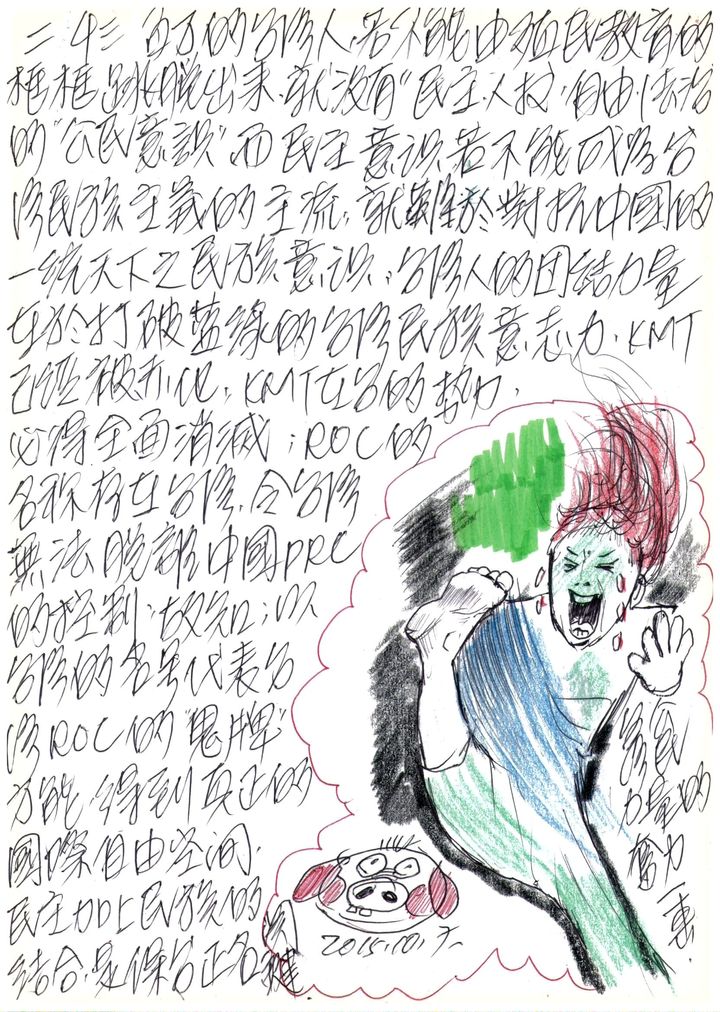 二十三百万的台湾人,若不能由殖民教育的
框框跳脱出来,就没有"民主.人权.自由.法治
的"公民意識",而民主意識若不能成為台
湾民族主義的主流,就難於對抗中國的
一统天下之民族意識;台湾人的团结力量
在於打破蓝绿的台湾民族意志力.KMT
已经被弱化,KMT在台的势力,
必得全面消滅;ROC的
名称存在台湾,令台湾
無法脱離中國PRC
的控制;故知;以
台湾的名号代表台
湾ROC的"鬼牌"
才能得到真正的
國際自由空间,
民主加上民族的
结合,是保台正名
关键
台民
力量的
奮力
一惠.
2015.10.